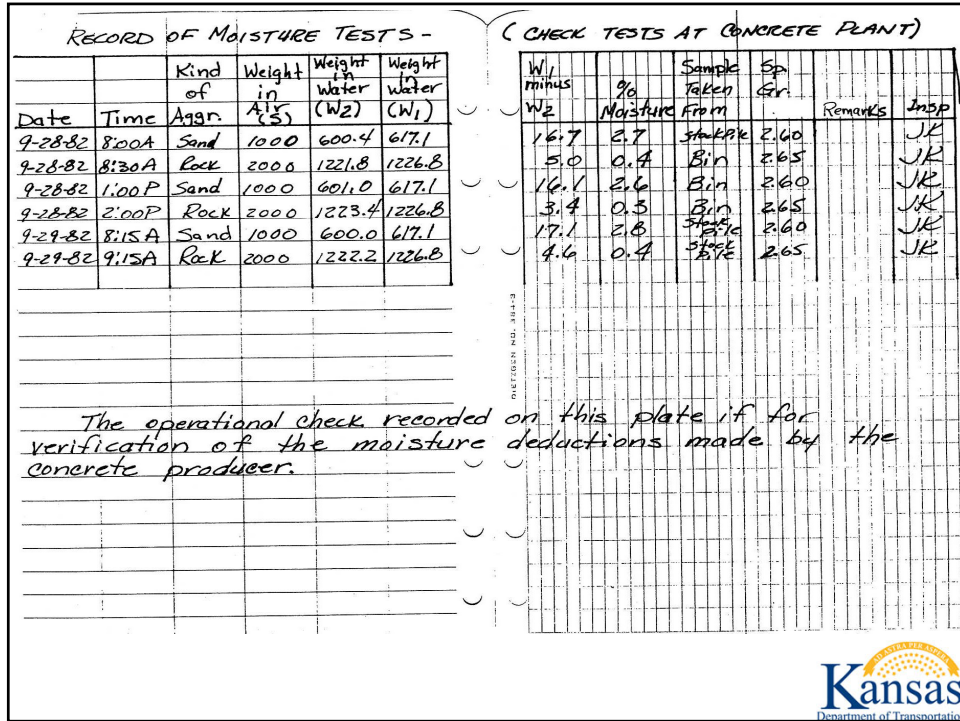 RECORD OF MOISTURE TESTS - (CHECK TESTS AT CONCRETE PLANT)
Date Time Kind of Aggr. Weight in Air (S) Weight in Water (W2) Weight in Water (W1) W1 minus W2 % Moisture Sample Taken From Sp. Gr. Remarks Insp
9-28-82 8:00A Sand 1000 600.4 617.1 16.7 2.7 StockPile 2.60 JK
9-28-82 8:30A Rock 2000 1221.8 1226.8 5.0 0.4 Bin 2.65 JK
9-28-82 1:00P Sand 1000 601.0 617.1 16.1 2.6 Bin 2.60 JK
9-28-82 2:00P Rock 2000 1223.4 1226.8 3.4 0.3 Bin 2.65 JK
9-29-82 8:15A Sand 1000 600.0 617.1 17.1 2.8 Stock pile 2.60 JK
9-29-82 9:15A Rock 2000 1222.2 1226.8 4.6 0.4 Stock pile 2.65 JK
The operational check recorded on this plate if for
verification of the moisture deductions made by the
concrete producer.
AD ASTRA PER ASPERA
Kansas
Department of Transportation